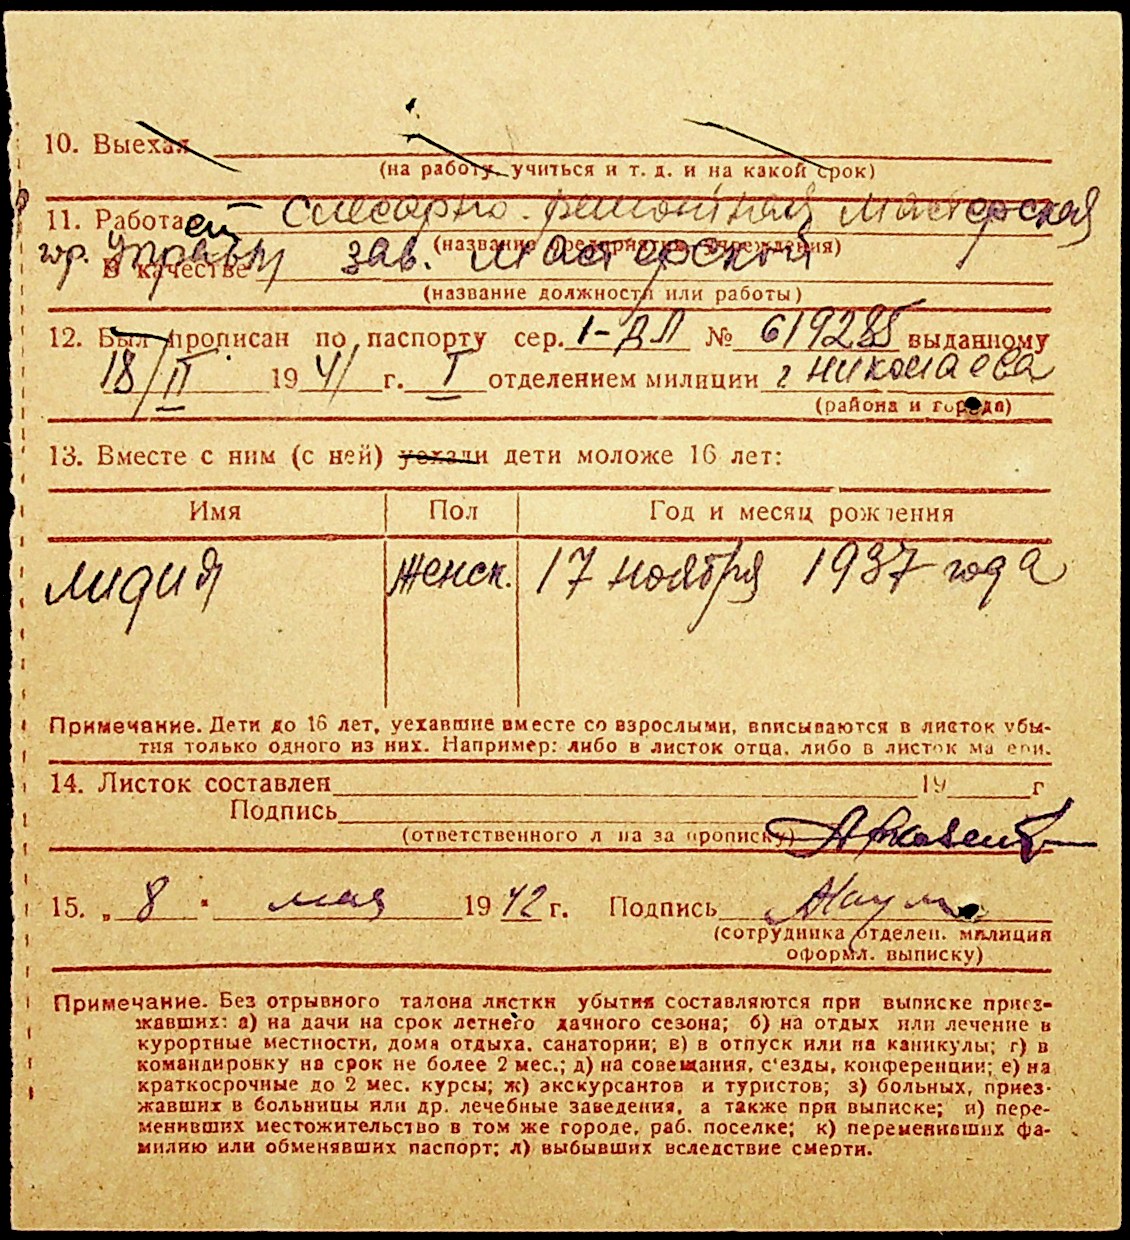 10. Выехал
(на работу, учиться и т. д. и на какой срок)
11. Работает Слесарно-ремонтная мастерская
(название предприятия, учреждения)
гор. Управы зав. мастерской
В качестве
(название должности или работы)
12. Был прописан по паспорту сер. I-ДЛ № 619285 выданному
18/II 1941 г. I отделением милиции г Николаева
(района и города)
13. Вместе с ним (с ней) уехали дети моложе 16 лет:
Имя Пол Год и месяц рождения
Лидия женск. 17 ноября 1937 года
Примечание. Дети до 16 лет, уехавшие вместе со взрослыми, вписываются в листок убы-
тия только одного из них. Например: либо в листок отца, либо в листок матери.
14. Листок составлен 19 г
Подпись
(ответственного лица за прописку)
15. „ 8 " мая 1942 г. Подпись
(сотрудника отделен. милиции
оформл. выписку)
Примечание. Без отрывного талона листки убытия составляются при выписке приез-
жавших: а) на дачи на срок летнего дачного сезона; б) на отдых или лечение в
курортные местности, дома отдыха, санатории; в) в отпуск или на каникулы; г) в
командировку на срок не более 2 мес.; д) на совещания, с'езды, конференции; е) на
краткосрочные до 2 мес. курсы; ж) экскурсантов и туристов; з) больных, приез-
жавших в больницы или др. лечебные заведения, а также при выписке; и) пере-
менивших местожительство в том же городе, раб. поселке; к) переменивших фа-
милию или обменявших паспорт; л) выбывших вследствие смерти.